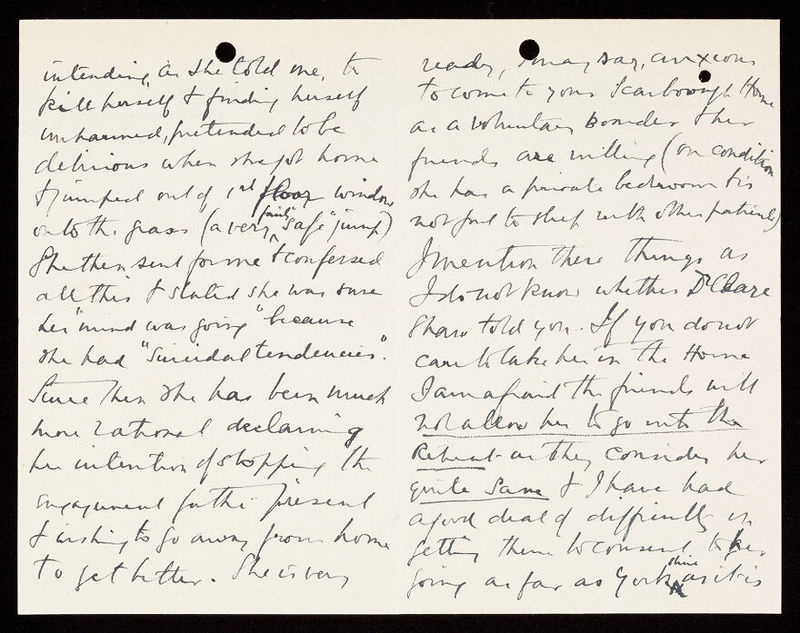 intending, as she told me, to
kill herself & finding herself
unharmed, pretended to be
delirious when she got home
& jumped out of 1st floor window
onto the grass (a very fairly "safe" jump)
She then sent for me & confessed
all this & stated she was sure
her "mind was going" because
she had "Suicidal tendencies".
Since then she has been much
more rational declaring
her intention of stopping the
engagement for the present
& wishing to go away from home
to get better. She is very
ready, I may say, anxious
to come to your Scarborough Home
as a voluntary boarder & her
friends are willing (on condition
she has a private bedroom & is
not put to sleep with other patients)
I mention these things as
I do not know whether Dr Clare
Shaw told you. If you do not
care to take her in the Home
I am afraid the friends will
not allow her to go into the
Retreat as they consider her
quite sane & I have had
a good deal of difficulty in
getting them to consent to her
going as far as Yorkshire as it is